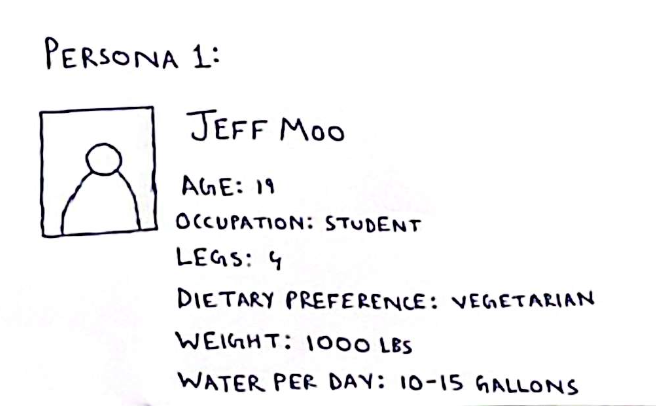 PERSONA 1:
JEFF MOO
AGE: 19
OCCUPATION: STUDENT
LEGS: 4
DIETARY PREFERENCE: VEGETARIAN
WEIGHT: 1000 LBS
WATER PER DAY: 10-15 GALLONS